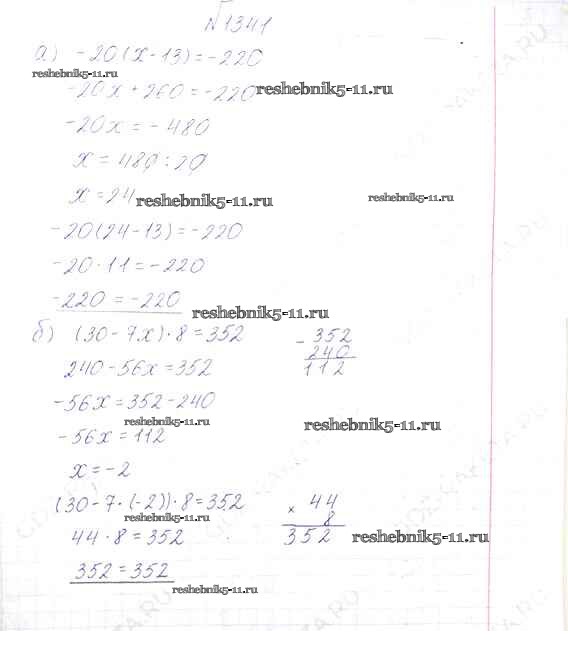 №1341
а) -20(x-13)=-220
reshebnik5-11.ru
-20x+260=-220 reshebnik5-11.ru
-20x=-480
x=480:20
x=24 reshebnik5-11.ru reshebnik5-11.ru
-20(24-13)=-220
-20·11=-220
-220=-220 reshebnik5-11.ru
б) (30-7x)·8=352 -352
240-56x=352 240
112
-56x=352-240
reshebnik5-11.ru reshebnik5-11.ru
-56x=112
x=-2
(30-7·(-2))·8=352 × 44
reshebnik5-11.ru 8
44·8=352 352 reshebnik5-11.ru
352=352
reshebnik5-11.ru